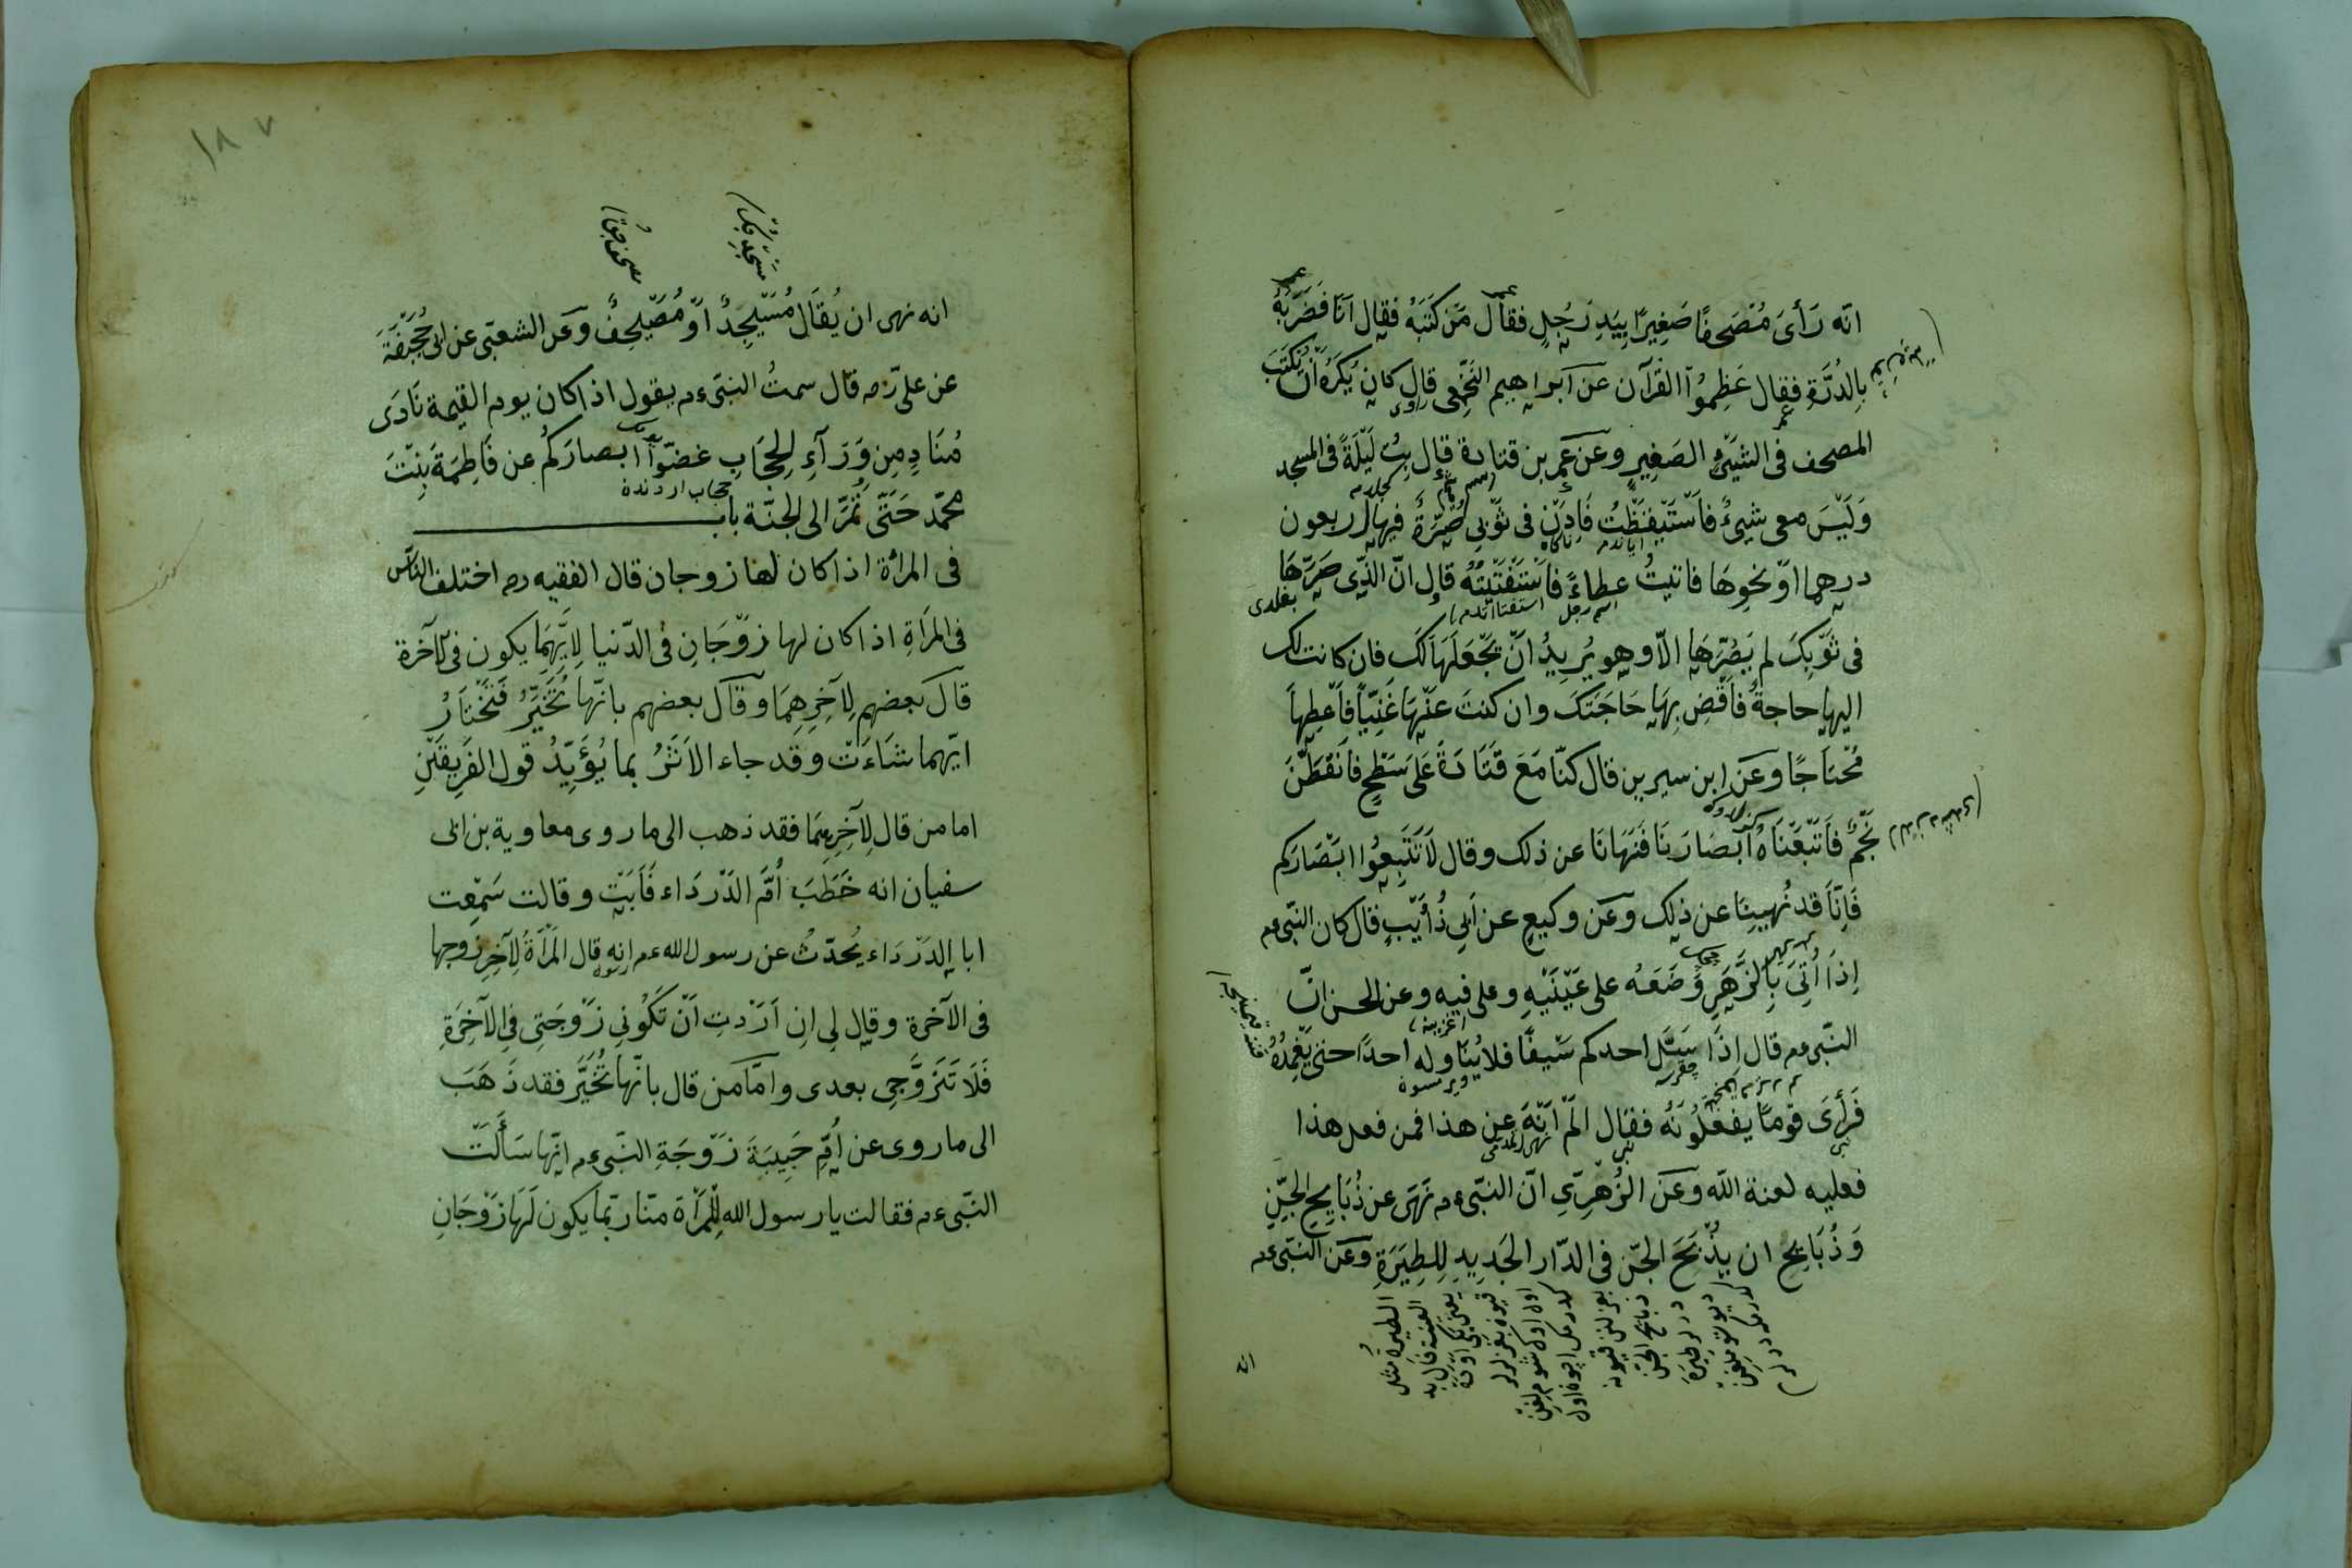 انّه رَأىَ مُصْحَفًا صَغِيرًا بِيَدِ رَجُلٍ فقال مَنْ كَتَبَهُ فقال اَنَا فَضَرَبَهُ
بِالدُرَّةِ فقال عَظِّمُوا القرآن عن ابراهيم النَّخَعِى قال كان يُكْرَهُ اَنْ يُكْتَبَ
المصحف فى الشَيْئِ الصَغِيرِ وعَن عمر بن قتادة قال بِتُ لَيْلَةً فى المسجد
وَلَيْسَ معى شيئٌ فَاسْتَيْقَظْتُ فَاِذَنْ فى ثَوْبِى صُرَّةٌ فيها اربعون
درهما اَوْ نحوِهَا فاتيتُ عطاءً فَاسْتَفْتَيْتُهُ قال انّ الذّى صَرَّهَا
فى ثَوْبِكَ لم يَصُرَّهَا الاّ وهو يُرِيدُ اَنْ يَجْعَلَهَا لَكَ فان كانت لك
اليها حاجةٌ فَاقْضِ بِهَا حَاجَتَكَ وان كنتَ عَنْهَا غَنِيّاً فَاعْطِهاَ
مُحْتَاجًا وعَن ابن سيرين قال كنّا مَعَ قَتَادَةَ عَلىَ سَطْحٍ فَانْقَضَّ
نَجْمٌ فَاَتْبَعْنَاهُ اَبْصَارَنَا فَنَهَانَا عن ذلك وقال لاَ تَتَّبِعُوا ابْصَارَكم
فَاِنَّا قد نُهِينَا عن ذلِك وعَن وكيعٍ عن اَبِى ذُؤَيْبٍ قال كان النّبى عم
اِذَا اُتِىَ بِالزَّهَرِ وَضَعَهُ على عَيْنَيْهِ وعلى فيه وعن الحسن انّ
النّبى عم قال اِذَا سَلَّ احدكم سَيْفًا فلا يُنَاوله احدًا حتى يَغْمِدَهُ
فَرَأىَ قَوْمًا يفعَلُونَهُ فقال الَمْ اَنْهَ عن هذا فمن فعل هذا
فعليه لعنة اللّه وعَن الزُهْرِىِّ انّ النّبى عم نَهَى عن ذَبَايِحِ الجِنِّ
وَذَبَايِحُ ان يُذْبَحَ الجنّ فى الدّار الجَدِيدِ لِلطِيَرَةِ وعَن النّبى عم
انه
١٨٧
انه نهى ان يُقَال مُسَيْجِدٌ اَوْ مُصَيْحِفٌ وعَن الشعبّى عن ابى جُحَيْفَةَ
عن علىّ رضه قال سمعتُ النبّى عم يقول اذا كان يوم القيمة نَادَى
مُنَادٍ مِن وَرَآءِ الحِجَابِ غضّوا ابصارَكُم عن فَاطِمَةَ بِنْتِ
محمّد حَتّى تَمُرَّ الى الجنّة باب
حجاب اردندن
فى المرأة اذا كان لها زوجان قال الفقيه رح اختلف النّاس
فى المَرأةِ اذا كان لها زَوْجَانِ فى الدّنيا لاَِيِّهِمَا يكون فى الآخرة
قال بعضهم لِآخِرِهِمَا وقال بعضهم بانّها تُخَيَّرُ فَتَخْتَارُ
ايّهما شَاءَتْ وقد جاء الاَثَرُ بما يُؤَيِّدُ قول الفَرِيقَيْنِ
اما من قال لِآخِرِهِمَا فقد ذهب الى ما روى معاوية بن ابى
سفيان انه خَطَبَ اُمَّ الدَرْدَاء فَاَبَتْ وقالت سَمِعت
ابا الدَرْدَاء يُحدّثُ عن رسول الله عم انه قال المَرْأةُ لِآخِرِ زوجها
فى الآخرة وقال لِى اِن اَرَدْتِ اَنْ تَكُونِى زَوْجَتِى فِى الآخِرَةِ
فَلاَ تَتَزَوَّجِى بعدى وامّا من قال بانّها تُخَيَّر فقد ذَهَبَ
الى ما روى عن اُمِّ حَبِيبَةَ زَوْجَةِ النّبى عم انّها سَأَلَتْ
النّبى عم فقالت يا رسول الله لِلْمَرْأة منّا ربّما يكون لَهَا زَوْجَانِ